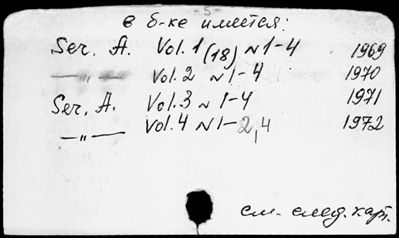 в б-ке имеется:
Ser. A. Vol. 1 (18) N 1-4 1969
—„— Vol. 2 N 1-4 1970
Ser. A. Vol. 3 N 1-4 1971
—„— Vol. 4 N 1-2,4 1972
см. след. карт.